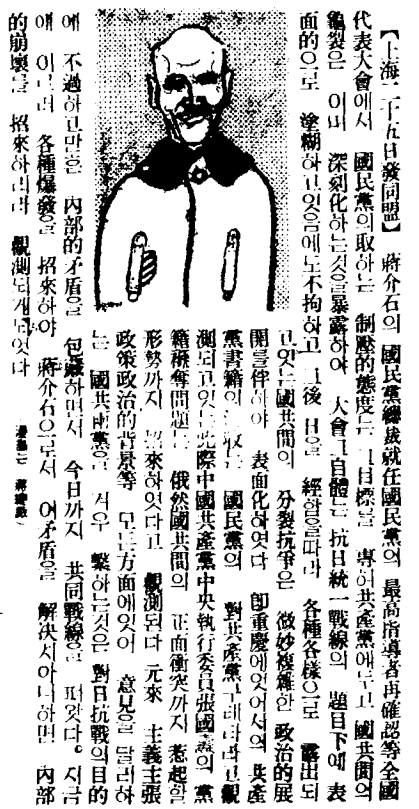 【上海二十五日發同盟】 蔣介石의 國民黨總裁就任國民黨의 最高指導者再確認等全國
代表大會에서 國民黨의取하는 制壓的態度는 그目標를 專혀共產黨에두고 國共間의
龜裂은 이미 深刻化하는것을暴露하야 大會그自體는 抗日統一戰線의 題目下에 表
面的으로 塗糊하고잇음에도不拘하고 그後 日을 經함을따라 各種各樣으로 露出되
고잇는國共間의 分裂抗爭은 微妙複雜한 政治的展
開를伴하야 表面化하엿다 卽重慶에잇어서의 共產
黨書籍의 는 國民黨의 對共產黨 라고觀
測되고잇는此際中國共產黨中央執行委員張國燾의 黨
籍剝奪問題는 俄然國共間의 正面衝突까지 惹起할
形勢까지 招來하엿다고 觀測된다 元來 主義主張
政策政治的背景等 모든方面에잇어 意見을달리하
는 國共兩黨을 겨우 繫하는것은 對日抗戰의目的
에 不過하고만흔 內部的矛盾을 包藏하면서 今日까지 共同戰線을 펴왓다。지금
에 이르러 各種爆發을 招來하야 蔣介石으로서 이矛盾을 解決치아니하면 內部
的崩壞를 招來하리라 觀測되게되엿다